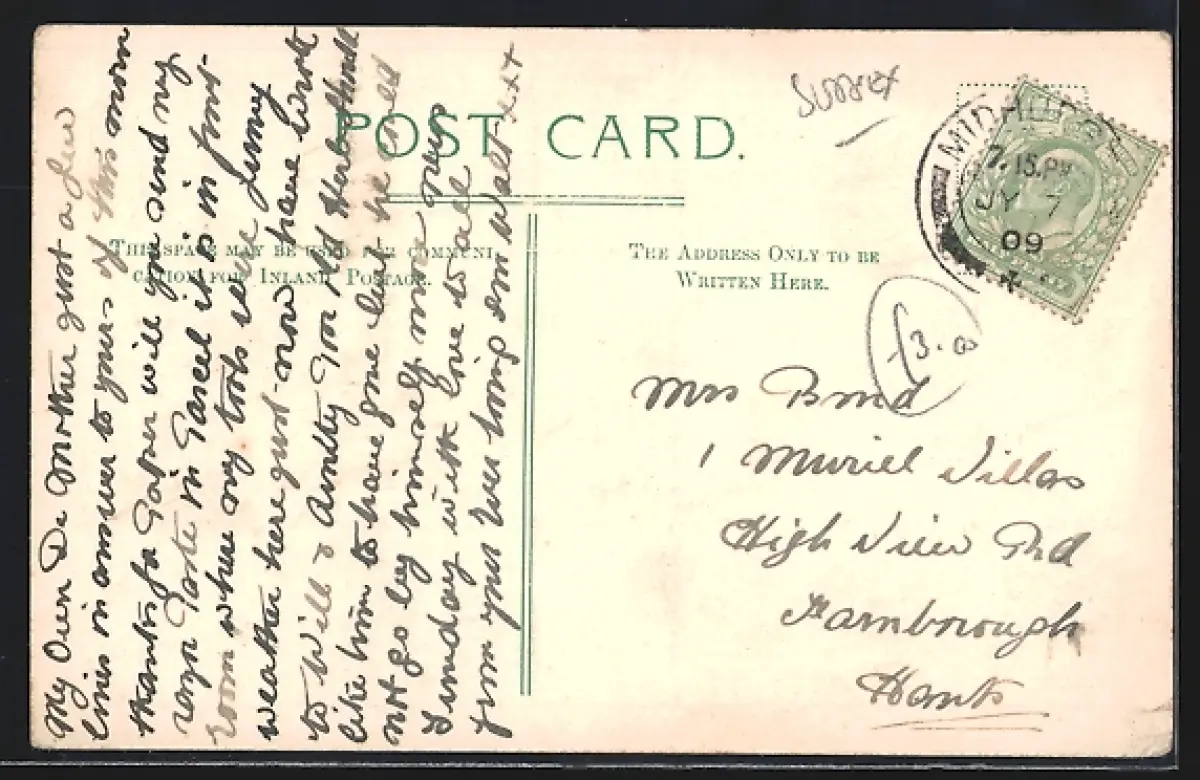 My Own Dr Mother just a few
lines in answer to yours of this morn
thanks for Paper will you send my
razor Paste in Parcel it is in front
room where my tools are funny
weather here just now have wrote
to Will & Aunty you Ad Herbert
like him to have gone but he
not go by himself more news
Sunday with love to all
from your Ever loving Son Walt xxx
POST CARD.
THIS SPACE MAY BE USED FOR COMMUNI-
CATION FOR INLAND POSTAGE.
THE ADDRESS ONLY TO BE
WRITTEN HERE.
Sussex
MIDHURST
7.15.PM
JY 7
09
Mrs Bond
1 Muriel Villas
High View Rd
Farnborough
Hants